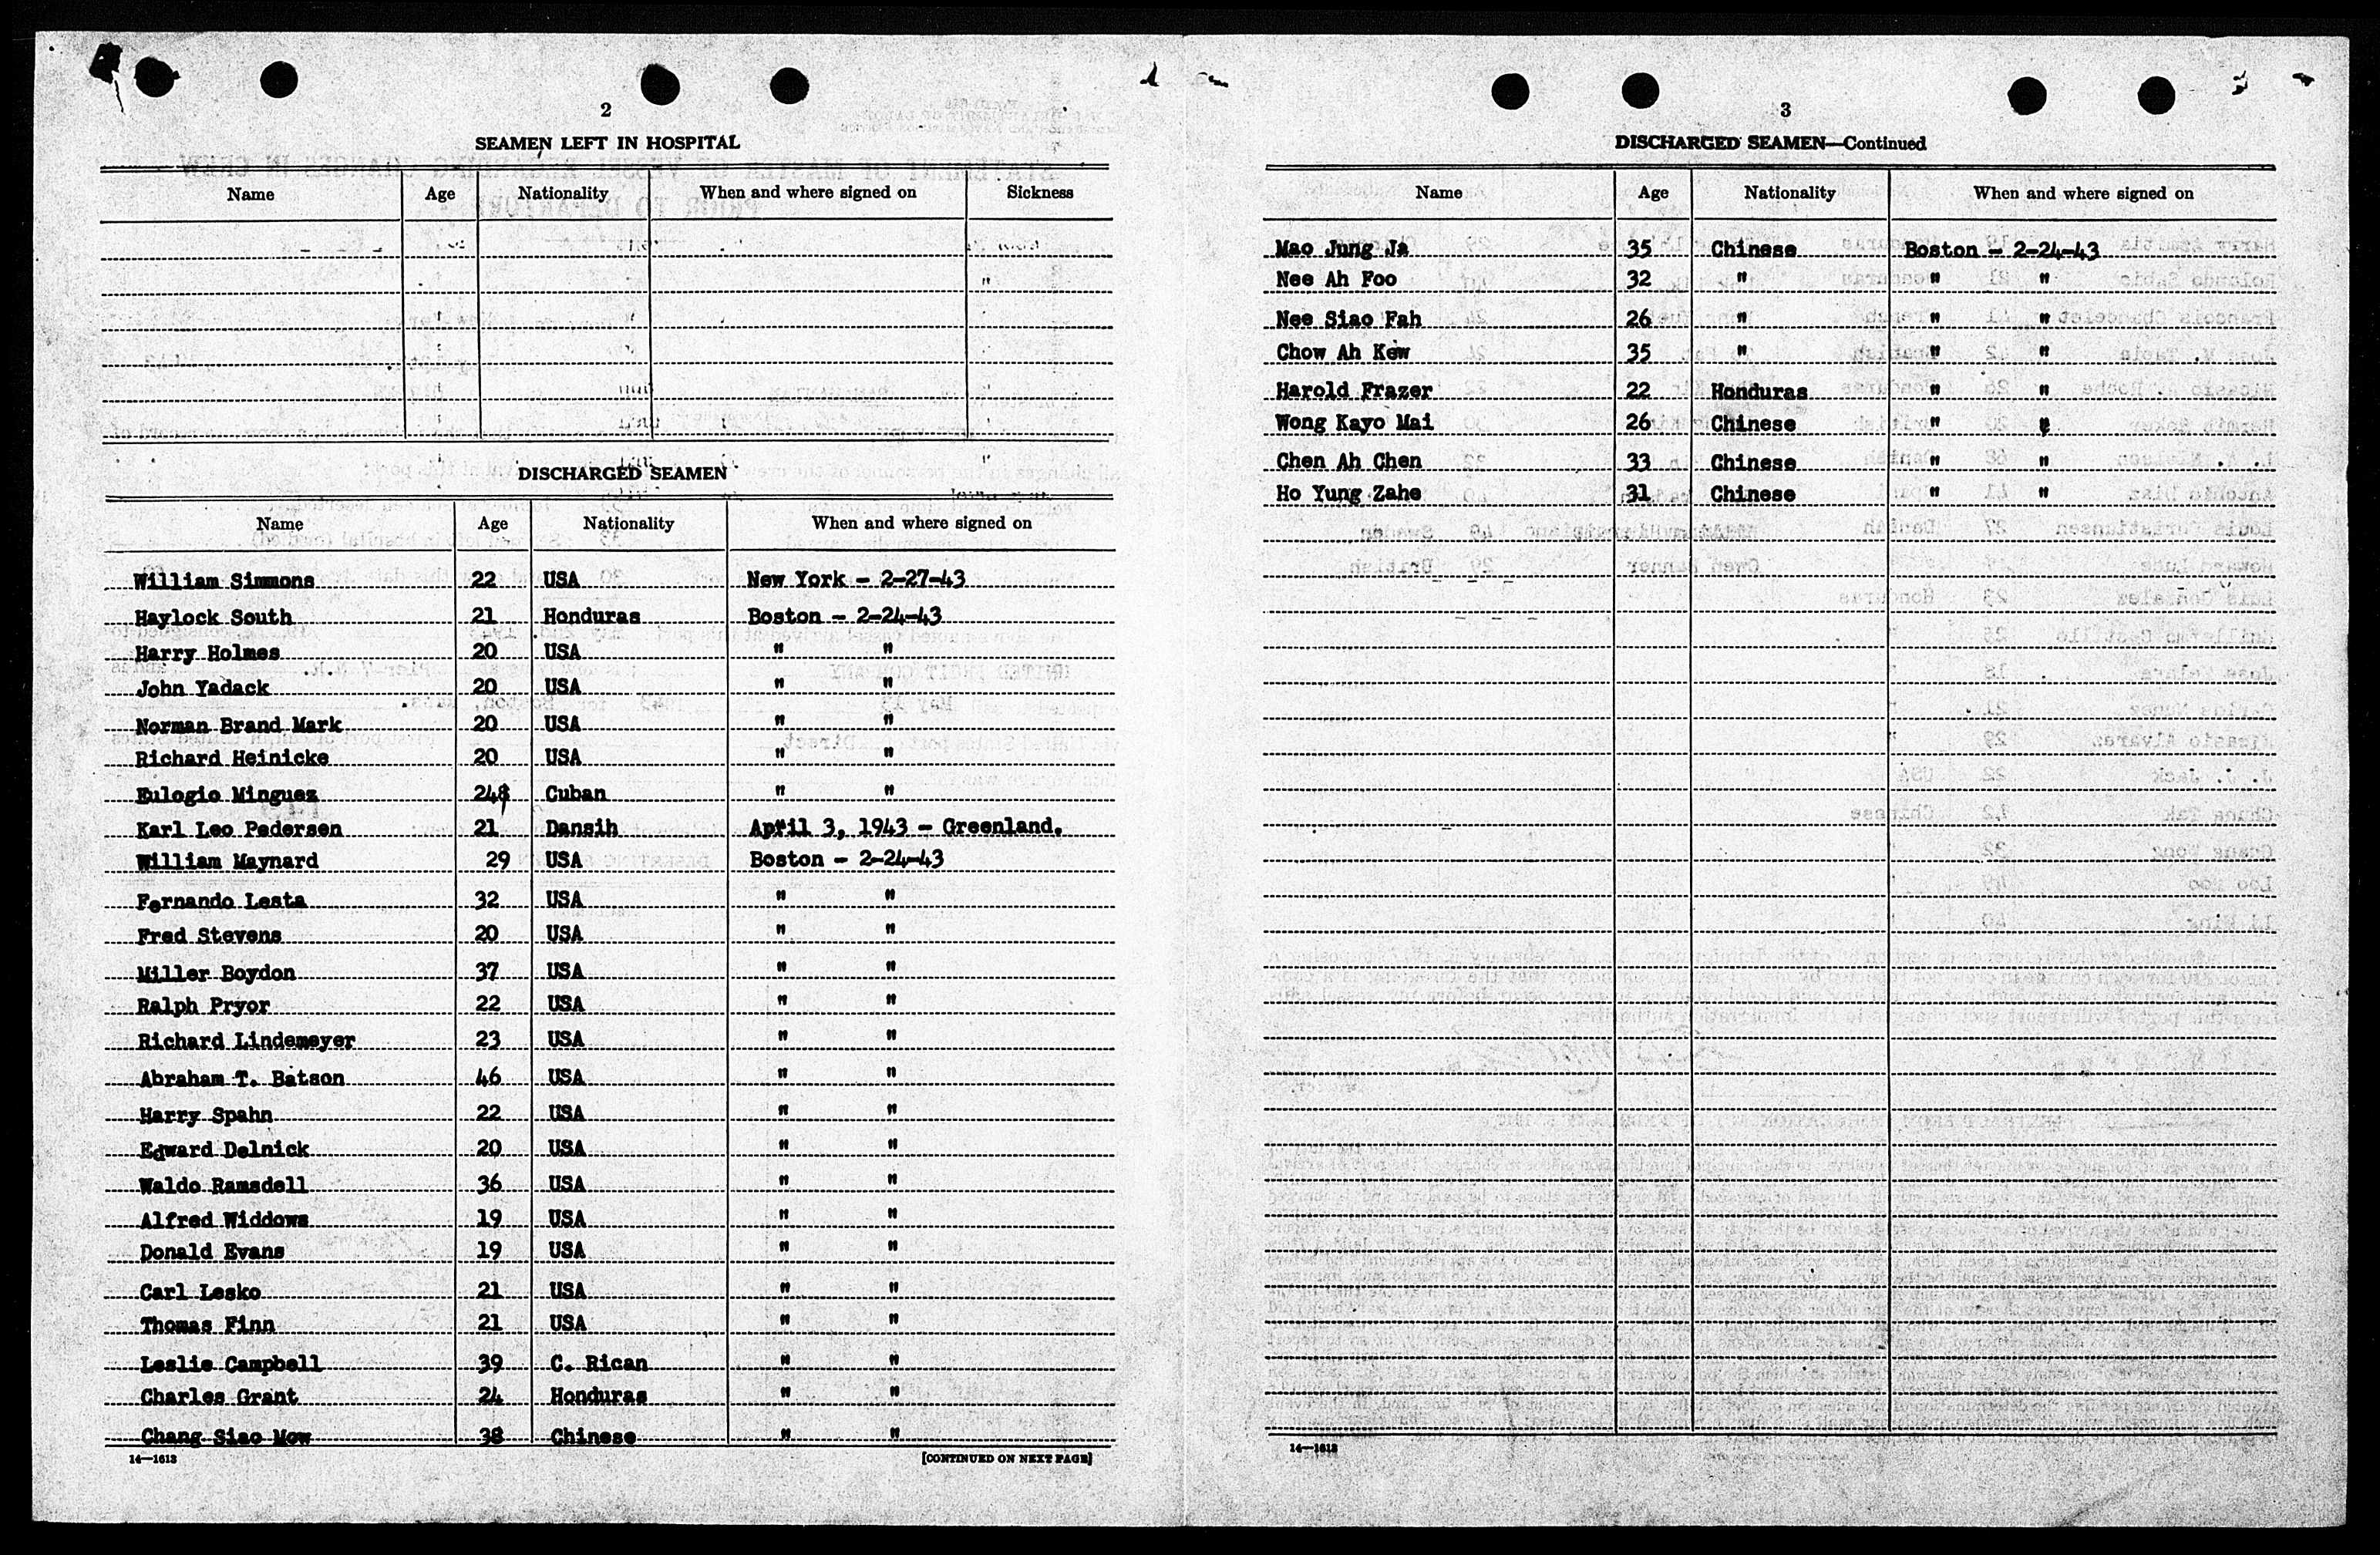 2
SEAMEN LEFT IN HOSPITAL
Name Age Nationality When and where signed on Sickness
DISCHARGED SEAMEN
Name Age Nationality When and where signed on
William Simmons 22 USA New York - 2-27-43
Haylock South 21 Honduras Boston - 2-24-43
Harry Holmes 20 USA " "
John Yadack 20 USA " "
Norman Brand Mark 20 USA " "
Richard Heinicke 20 USA " "
Eulogio Minguez 24 Cuban " "
Karl Leo Pedersen 21 Dansih April 3, 1943 - Greenland.
William Maynard 29 USA Boston - 2-24-43
Fernando Lesta 32 USA " "
Fred Stevens 20 USA " "
Miller Boydon 37 USA " "
Ralph Pryor 22 USA " "
Richard Lindemeyer 23 USA " "
Abraham T. Batson 46 USA " "
Harry Spahn 22 USA " "
Edward Delnick 20 USA " "
Waldo Ramsdell 36 USA " "
Alfred Widdows 19 USA " "
Donald Evans 19 USA " "
Carl Lesko 21 USA " "
Thomas Finn 21 USA " "
Leslie Campbell 39 C. Rican " "
Charles Grant 24 Honduras " "
Chang Siao Mow 38 Chinese " "
14—1613 [CONTINUED ON NEXT PAGE]
3
DISCHARGED SEAMEN—Continued
Name Age Nationality When and where signed on
Mao Jung Ja 35 Chinese Boston - 2-24-43
Nee Ah Foo 32 " " "
Nee Siao Fah 26 " " "
Chow Ah Kew 35 " " "
Harold Frazer 22 Honduras " "
Wong Kayo Mai 26 Chinese " "
Chen Ah Chen 33 Chinese " "
Ho Yung Zahe 31 Chinese " "
14—1613